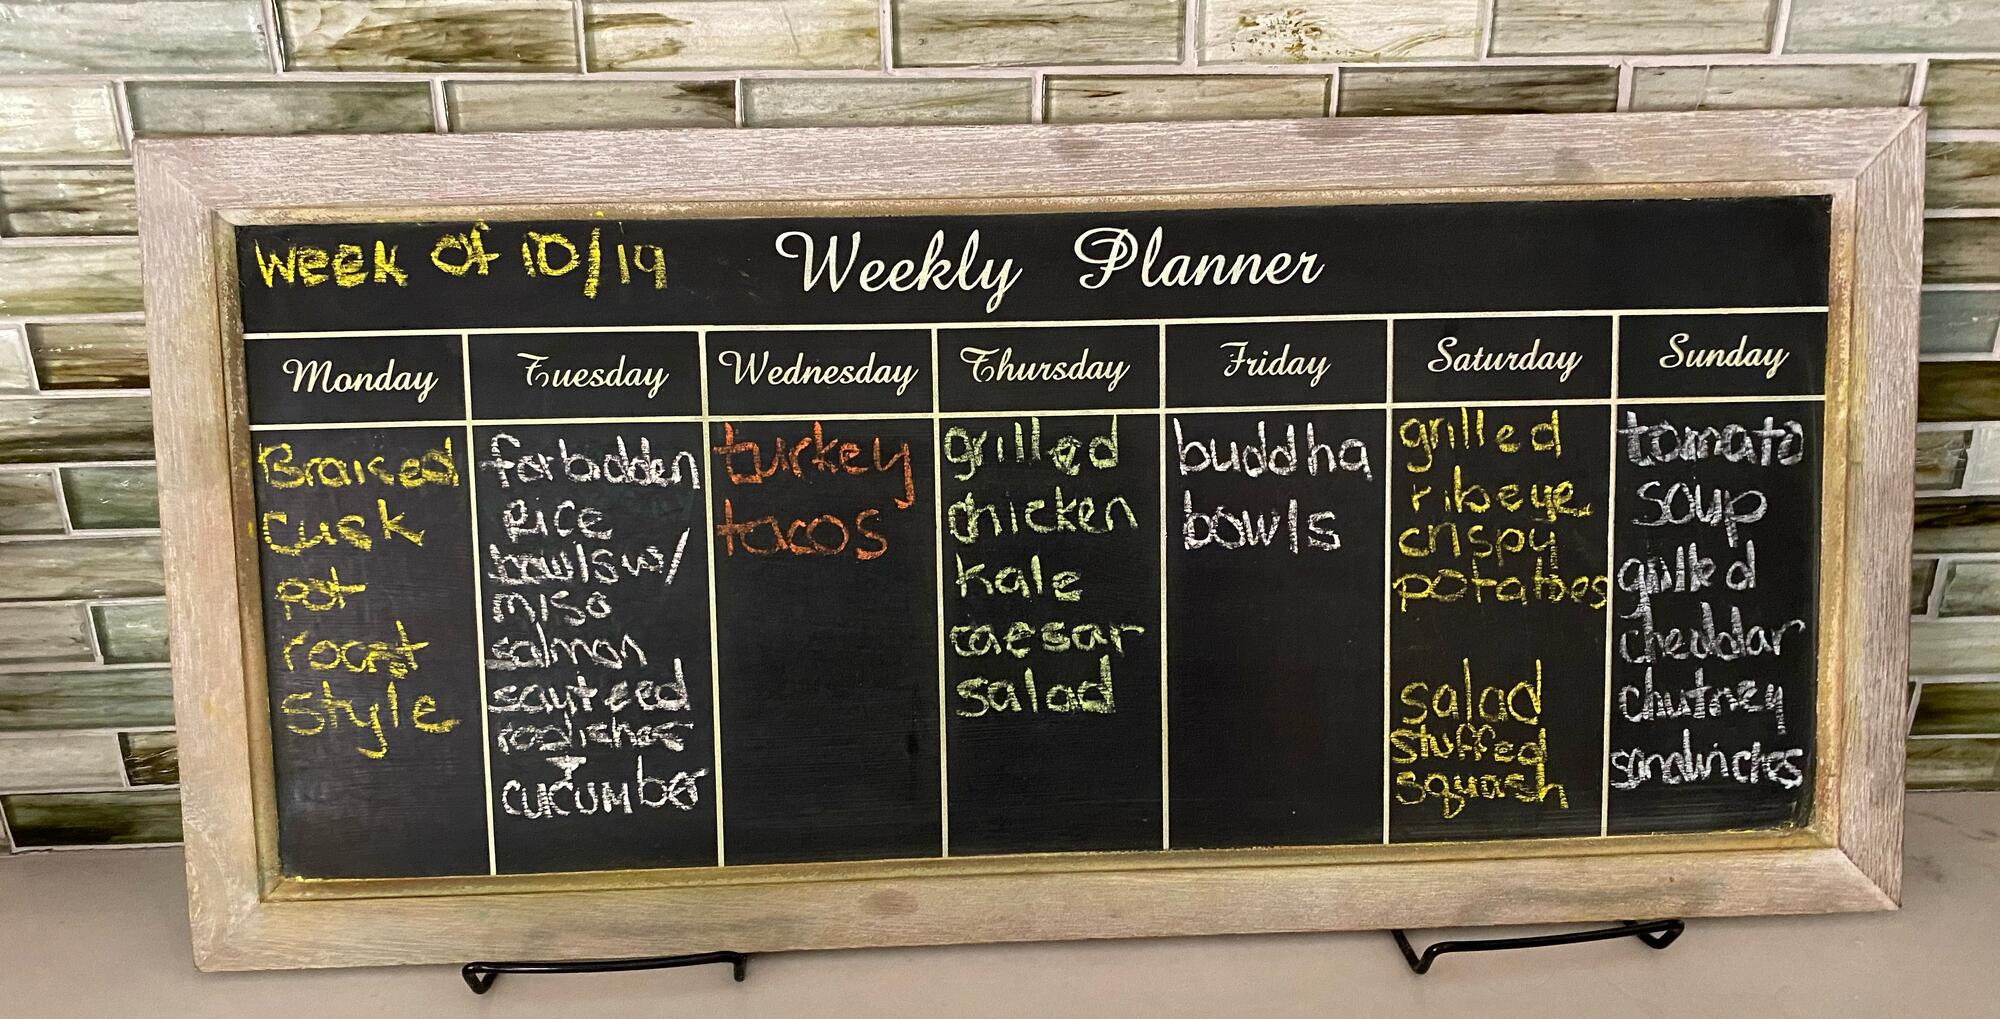 week of 10/19
Weekly Planner
Monday
Braised
Cusk
pot
roast
style
Tuesday
forbidden
RICE
bowls w/
miso
salmon
sauteed
radishes
+
cucumber
Wednesday
turkey
tacos
Thursday
grilled
chicken
kale
caesar
salad
Friday
buddha
bowls
Saturday
grilled
ribeye
crispy
potatoes
salad
stuffed
squash
Sunday
tomato
soup
grilled
cheddar
chutney
sandwiches